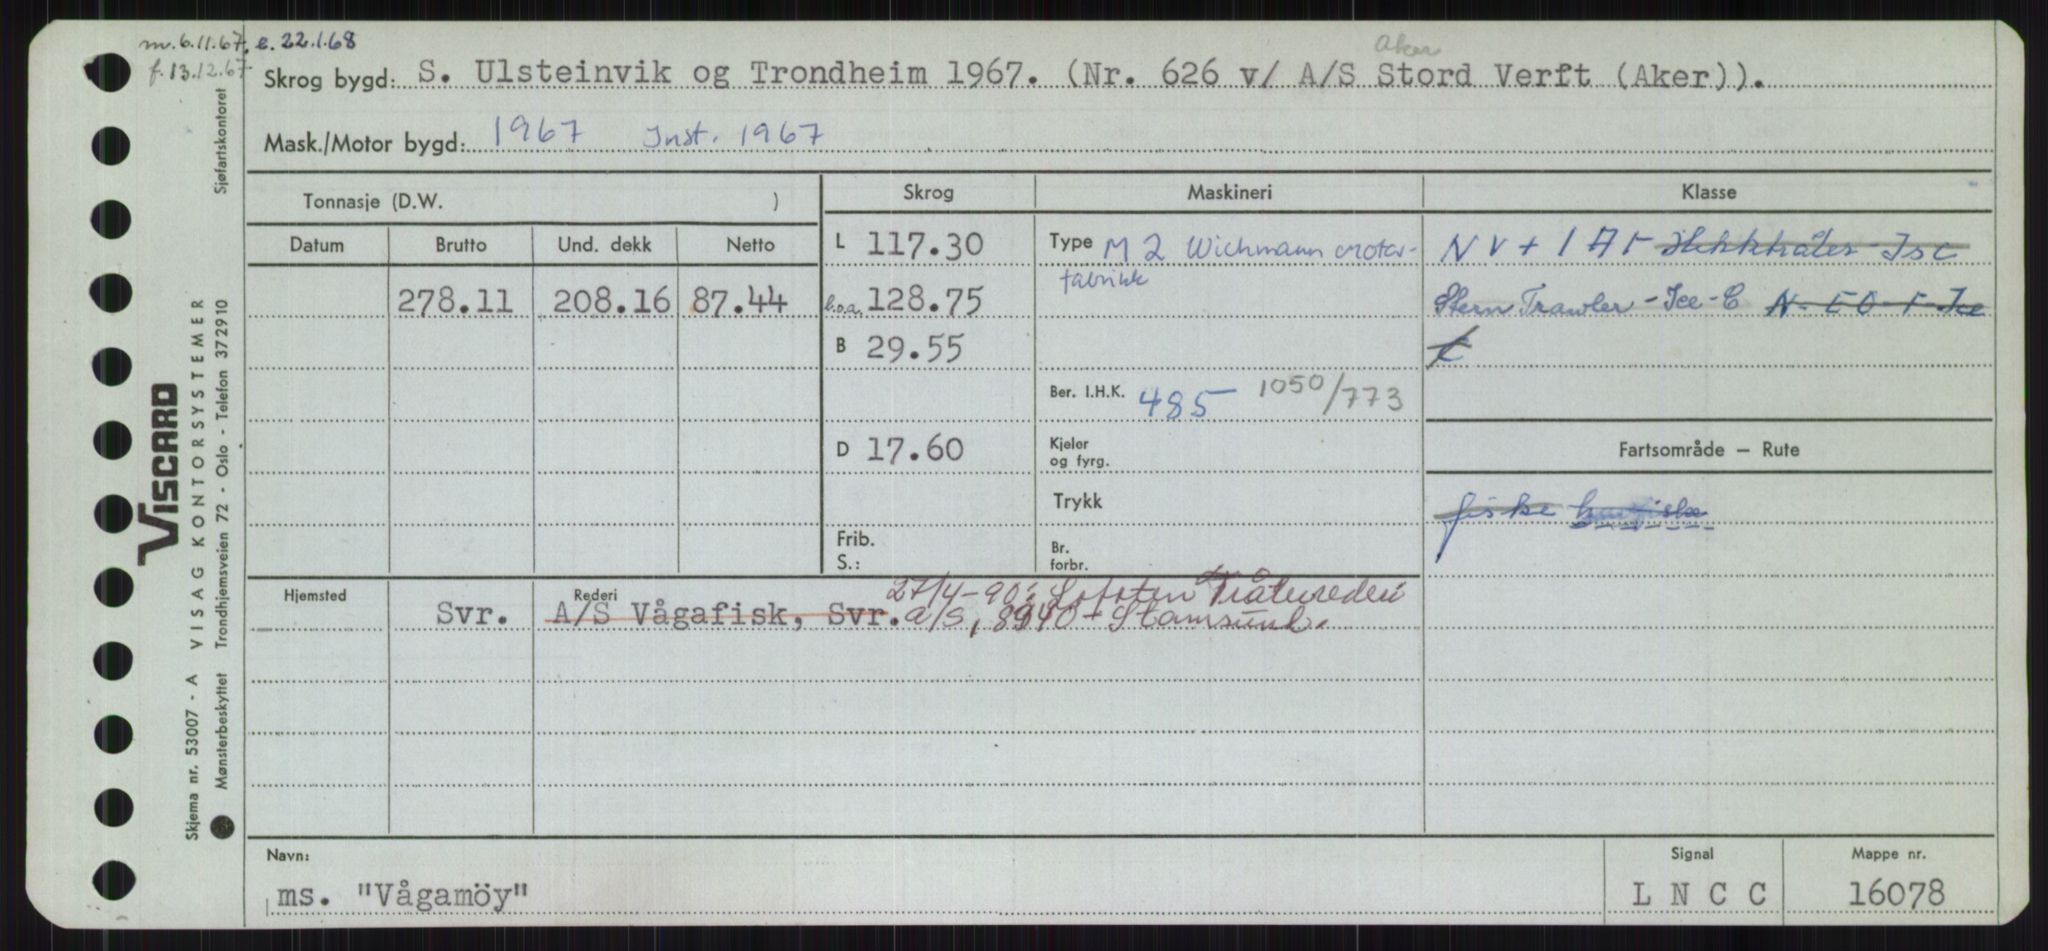 m. 6.11.67. e. 22.1.68
f. 13.12.67
Aker
Skrog bygd: S. Ulsteinvik og Trondheim 1967. (Nr. 626 v/ A/S Stord Verft (Aker)).
Mask./Motor bygd: 1967 Inst. 1967
Tonnasje (D.W. )
Skrog
Maskineri
Klasse
Datum
Brutto
Und. dekk
Netto
278.11
208.16
87.44
L 117.30
b.o.a. 128.75
B 29.55
D 17.60
Frib.
S.:
Type M 2 Wichmann motor-
fabrikk
Ber. I.H.K. 485 1050/773
Kjeler
og fyrg.
Trykk
Br.
forbr.
N V + 1 A1 - Hekktråler - Isc
Stern Trawler - Ice - C N - E0 - F - Ice
C
Fartsområde — Rute
fiske
Hjemsted
Svr.
Rederi
27/4-90: Lofoten Trålerrederi
A/S Vågafisk, Svr. A/S, 8340 - Stamsund.
Navn:
ms. "Vågamöy"
Signal
L N C C
Mappe nr.
16078
VISCARD
Skjema nr. 53007 - A VISAG KONTORSYSTEMER
Mønsterbeskyttet Trondhjemsveien 72 - Oslo - Telefon 372910
Sjøfartskontoret